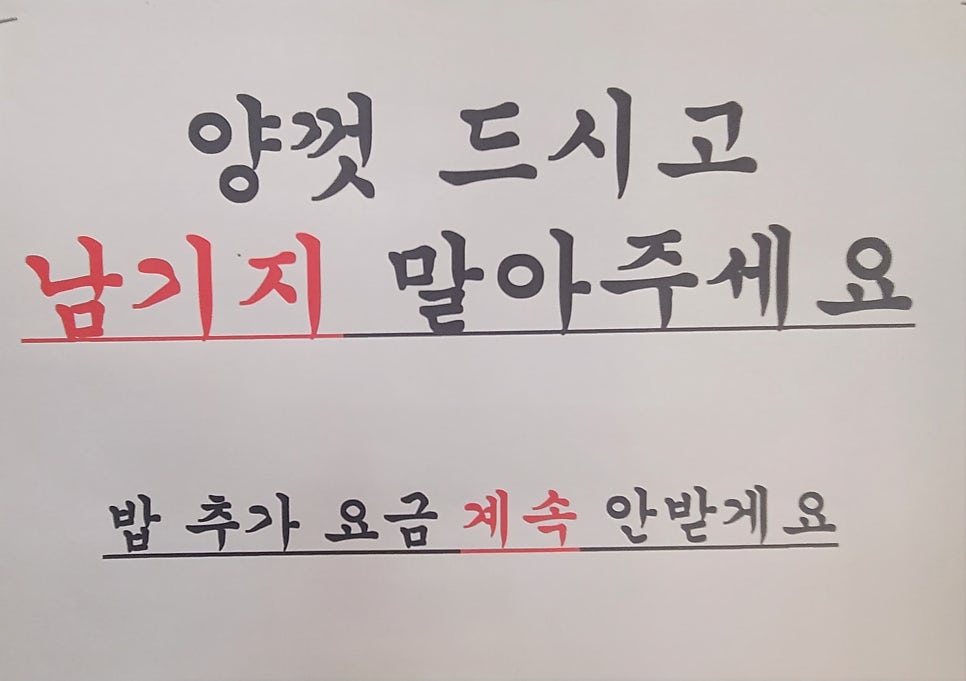 양껏 드시고
남기지 말아주세요
밥 추가 요금 계속 안받게요